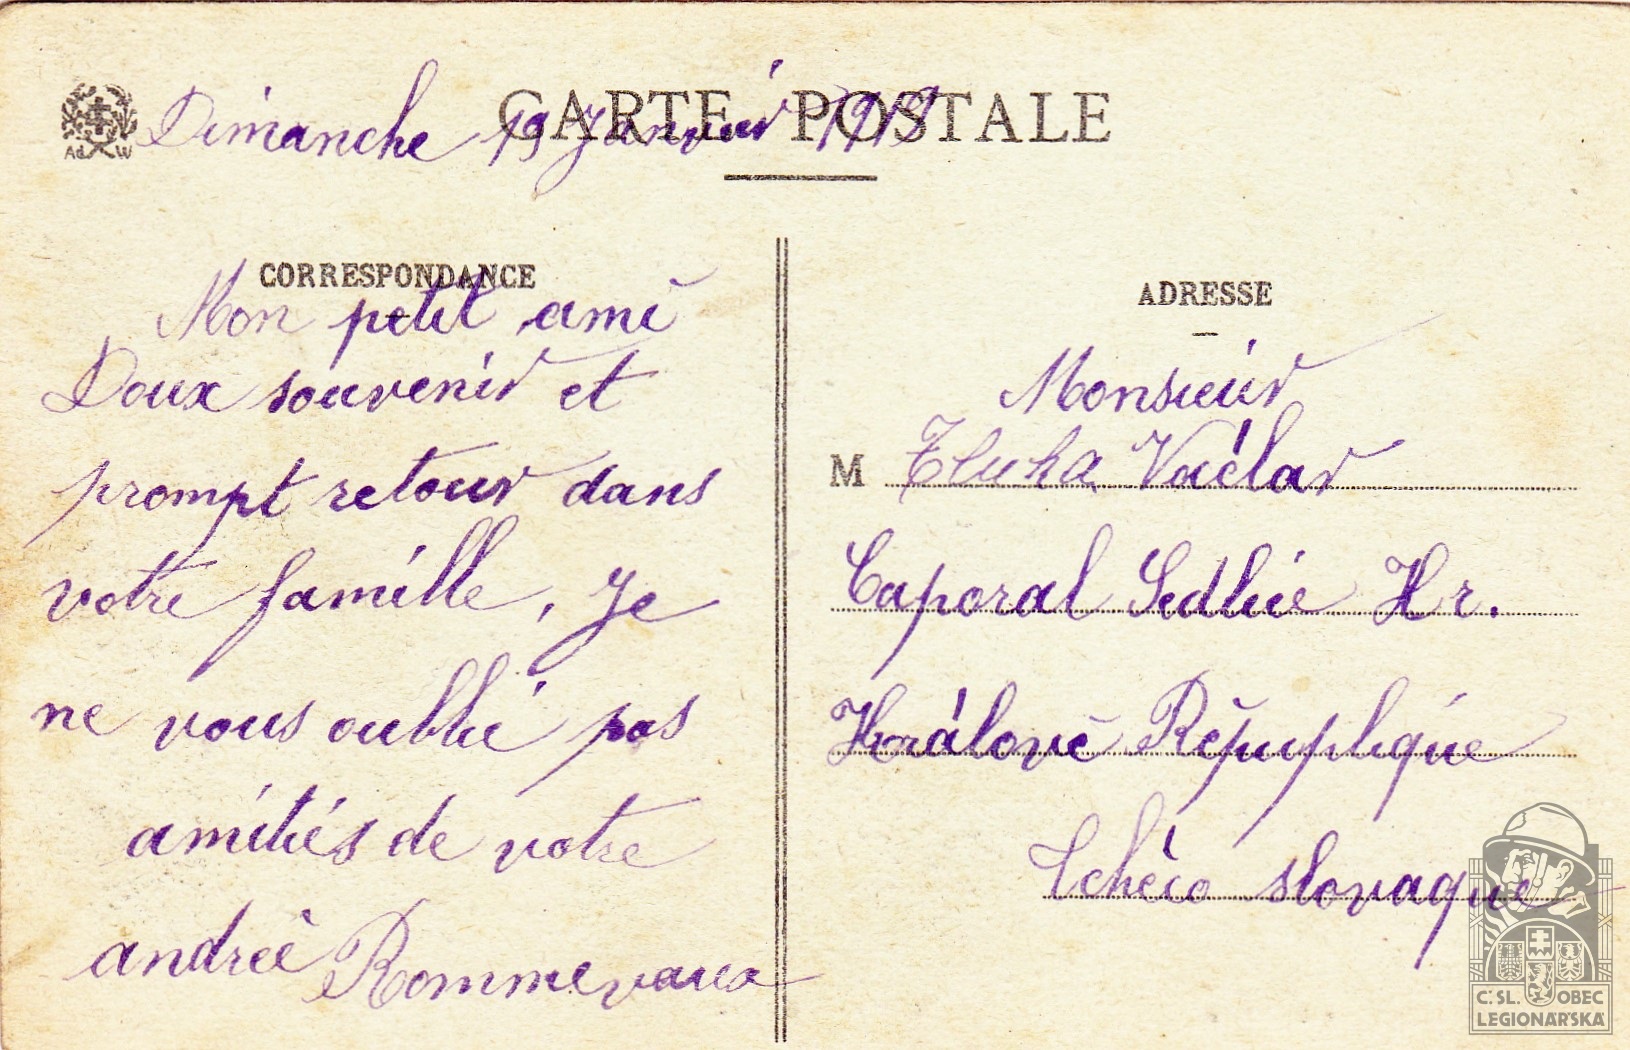 Dimanche 19 Janvier 1919
CARTE POSTALE
Ad W
CORRESPONDANCE
Mon petit ami
Doux souvenir et
prompt retour dans
votre famille, Je
ne vous oublié pas
amitiés de votre
andreè Rommevaux
ADRESSE
Monsieur
M Tluka Vaélav
Caporal Sedlèie Hr.
Králově Rěpuplique
tchéco slovaque
Č. SL. OBEC
LEGIONÁŘSKÁ